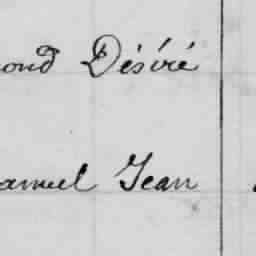 ond Désiré
amuel Jean